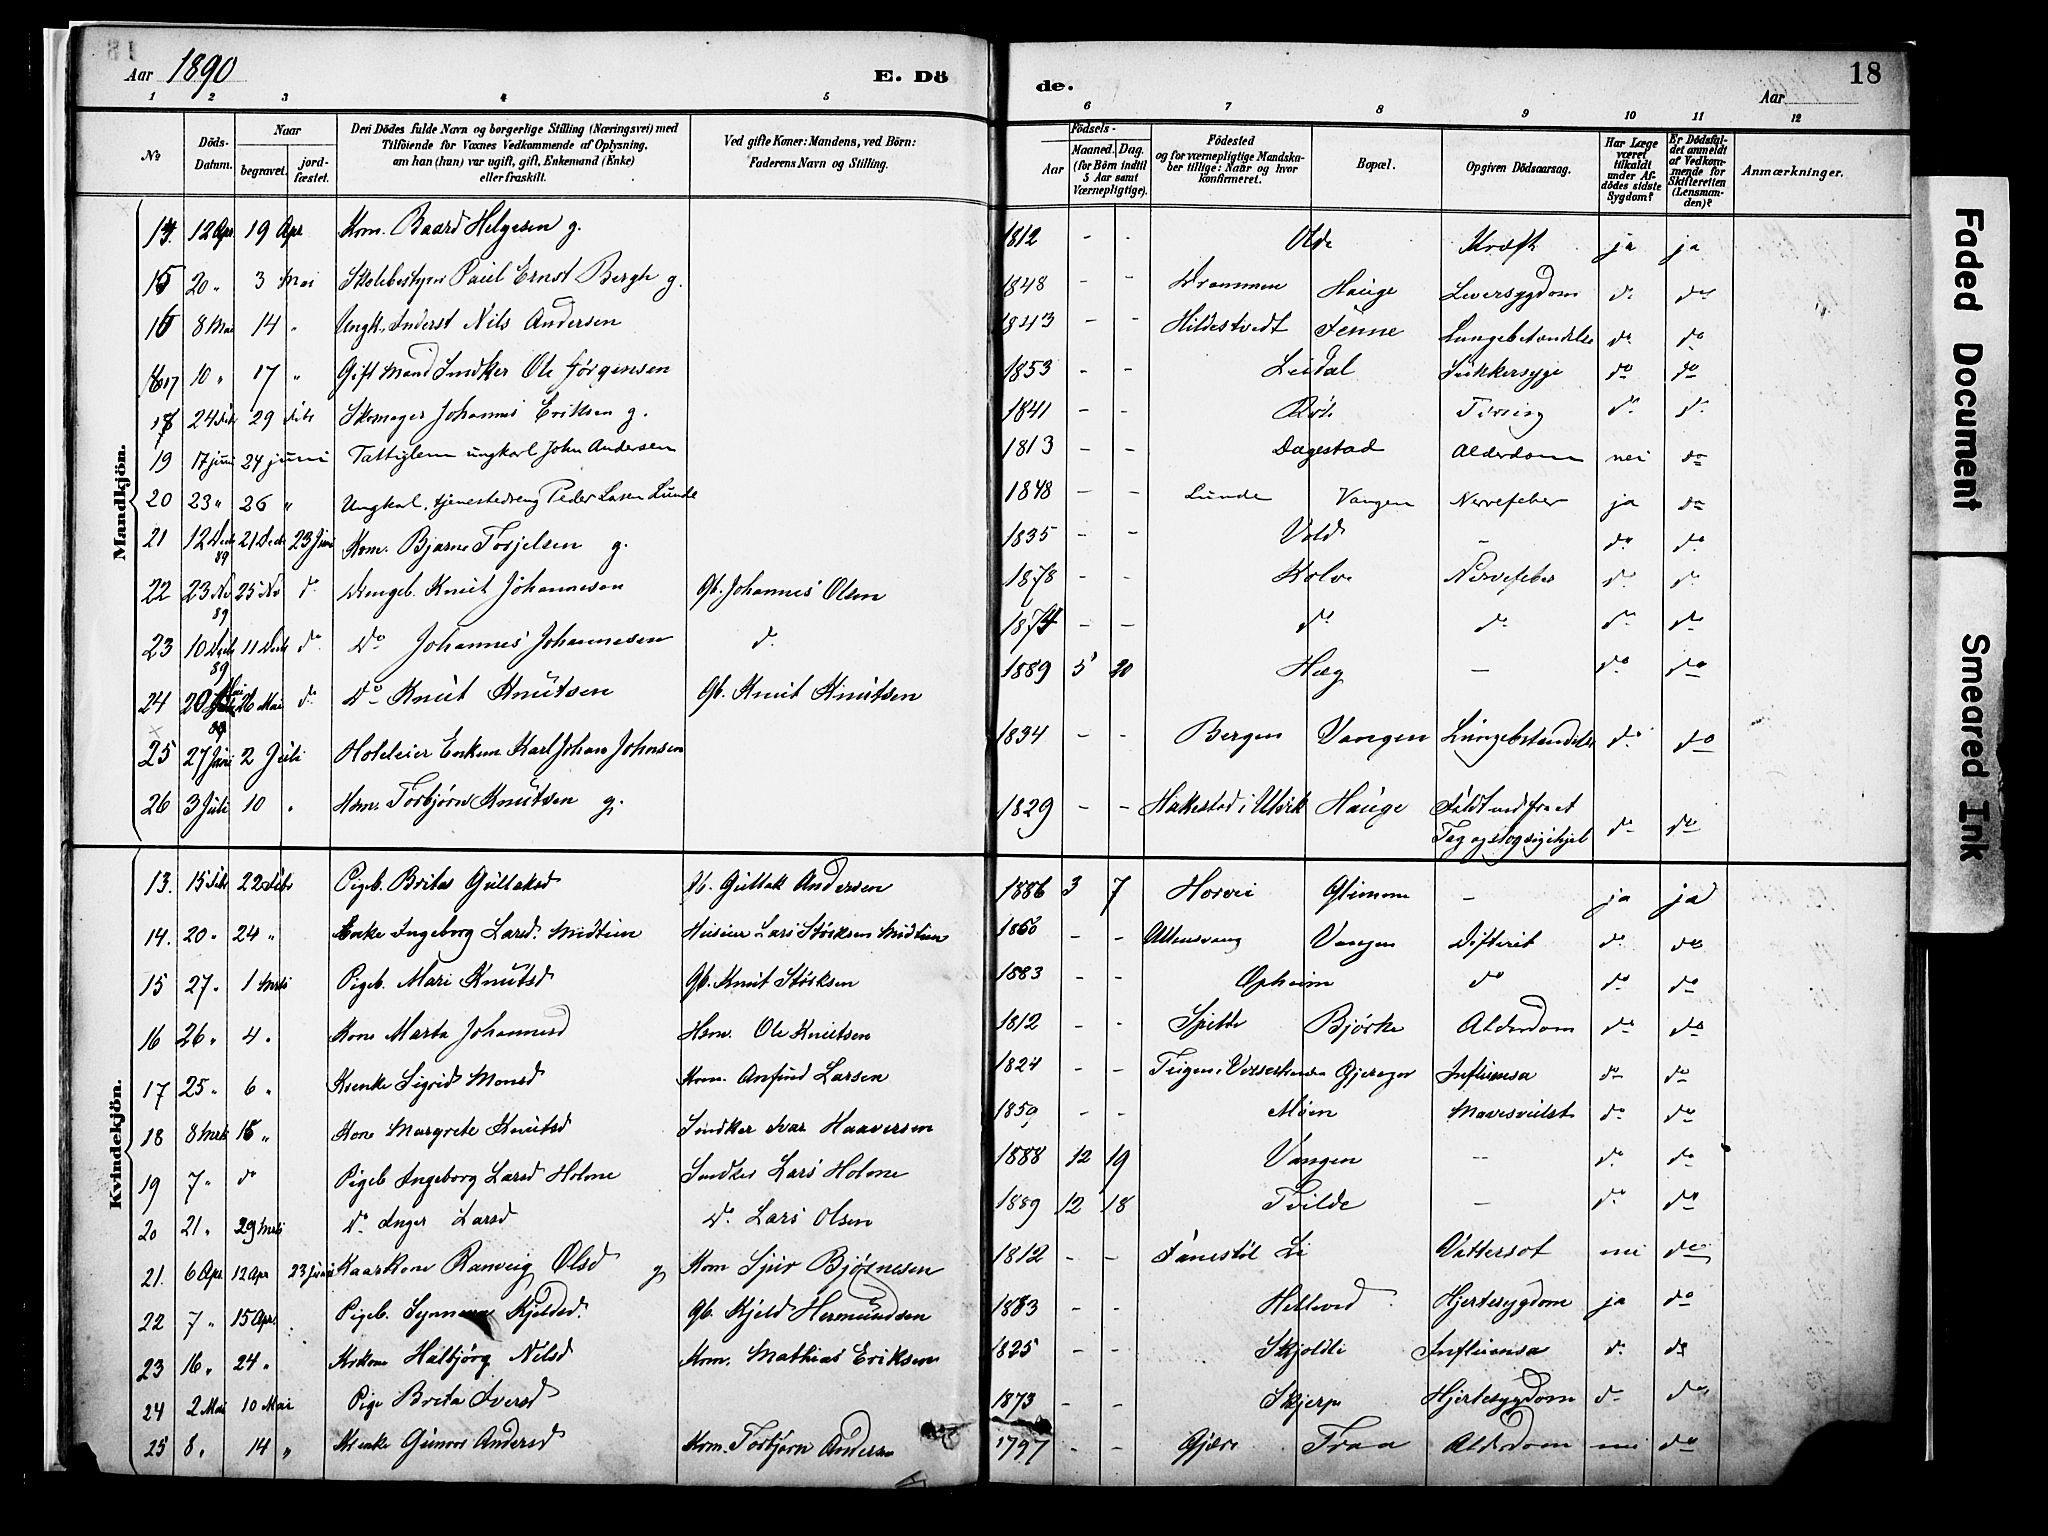 Aar 1890
E. Dö
de.
18
Aar
1 2 3 4 5 6 7 8 9 10 11 12
No
Döds-Datum.
Naar
begravet.
jord-fæstet.
Den Dödes fulde Navn og borgerlige Stilling (Næringsvei) med
Tilföiende for Voxnes Vedkommende af Oplysning,
om han (hun) var ugift, gift, Enkemand (Enke)
eller fraskilt.
Ved gifte Koner: Mandens, ved Börn:
Faderens Navn og Stilling.
Födsels-
Aar
Maaned. Dag.
(for Börn indtil
5 Aar samt
Værnepligtige).
Födested
og for værnepligtige Mandska-
ber tillige: Naar og hvor
konfirmeret.
Bopæl.
Opgiven Dödsaarsag.
Har Læge
været
tilkaldt
under Af-
dödes sidste
Sygdom?
Er Dödsfal-
det anmeldt
af Vedkom-
mende for
Skifteretten
(Lensman-
den)?
Anmærkninger.
Mandkjön.
14. 12 Apr 19 Apr Kom. Baard Helgesen g. 1812 - - Olde Kræft ja ja
15 20 „ 3 Mai Skolebestyrer Paul Ernst Bergh g. 1848 - - Drammen Hauge Leversygdom do do
16 8 Mai 14 „ Ungk. Inderst Nils Andersen 1843 - - Hildestvedt Tenne Lungebetændelse do do
17 10 „ 17 „ Gift Mand Smdker Ole Jörgensen 1853 - - Leidal Sukkersyge do do
18 24 Feb 29 Feb Skomager Johannes Eriksen g. 1841 - - Röte Tæring do do
19 17 juni 24 juni Fattiglem ungkarl John Andersen 1813 - - Dagestad Alderdom nei do
20 23 „ 26 „ Ungkarl, tjenestedreng Peder Larsen Lunde 1848 - - Lunde Vangen Nervefeber ja do
21 12 Decb 89 21 Decb 23 Juni Kom. Bjarne Torjelsen g. 1835 - - Vold - do do
22 23 Nv 89 25 Nv do Drengeb. Knut Johannesen Gb. Johannes Olsen 1878 - - Kolve Nervefeber do do
23 10 Decb 89 11 Decb do Do Johannes Johannesen do 1874 - - do do do do
24 20 Mai 26 Mai do Do Knut Knutsen Gb. Knut Knutsen 1889 5 20 Hæg - do do
25 27 Juni 2 Juli Hoteleier Enkem Karl Johan Johnsen 1834 - - Bergen Vangen Lungebetændelse do do
26 3 Juli 10 „ Hsm. Torbjörn Knutsen g. 1829 - - Hakestad i Ulvik Hauge Faldt ned fra et
Tag og slog sig ihjel do do
Kvindekjön.
13. 15 Feb 22 Feb Pigeb. Brita Gullaksd Gullak Andersen 1886 3 7 Horvei Glimme - ja ja
14. 20 „ 24 „ Enke Ingeborg Larsd. Midtun Huseier Lars Störksen Midtun 1860 - - Ullensvang Vangen Difterit do do
15 27 „ 1 Mrts Pigeb. Mari Knutsd Gb. Knut Störksen 1883 - - Opheim do do do
16 26 „ 4 „ Kone Marta Johannesd Hsm. Ole Knutsen 1812 - - Spilde Björke Alderdom do do
17 25 „ 6 „ Kenke Sigrid Monsd Kom. Anfind Larsen 1824 - - Gjerager Influensa do do
18 8 Mrts 15 „ Kone Margrete Knutsd Smdker Ivar Haaversen 1859 - - Möen Mavesvulst do do
19 7 „ do Pigeb Ingeborg Larsd Holme Smdker Lars Holme 1888 12 19 Vangen - do do
20 21 „ 29 Mrts Do Inger Larsd Do Lars Olsen 1889 12 18 Tvilde - do do
21. 6 Apr 12 Apr 23 Juni Kaarkone Ranveig Olsd g Kom Sjur Björnesen 1812 - - Fanestöl Li Vattersot nei do
22 7 „ 15 Apr. Pigeb. Synneva Kjeldsd. Gb. Kjeld Hermundsen 1883 - - Helleved Hjertesygdom ja do
23 16 „ 24 „ Krkone Halbjörg Nilsd Krm. Mathias Eriksen 1825 - - Skjoldli Influensa do do
24 2 Mai 10 Mai Pige Brita Iversd 1873 - - Skjerpe Hjertesygdom do do
25 8 „ 14 „ Krenke Gunvor Andersd Krm. Torbjörn Anderss 1797 - - Gjære Traa Alderdom nei do
Faded Document
Smeared Ink